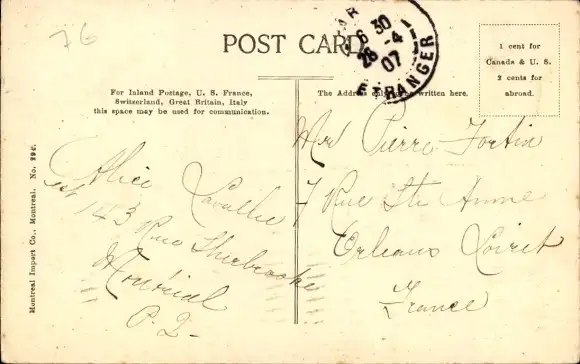 76
POST CARD
6 30
26 -4
07
ETRANGER
1 cent for
Canada & U. S.
2 cents for
abroad.
For Inland Postage, U. S. France,
Switzerland, Great Britain, Italy
this space may be used for communication.
The Address only to be written here.
Montreal Import Co., Montreal. No.
Alice Lavallée
143 Rue Sherbrooke
Montréal
P. Q-
Pierre Fortin
7 Rue Ste Anne
Orleans Loiret
France